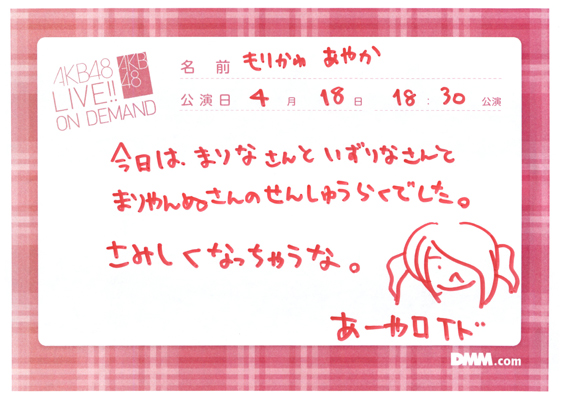 AKB48
LIVE!!
ON DEMAND
AKB
48
名前 もりかわ あやか
公演日 4月 18日 18:30 公演
今日は、まりなさんといずりなさんと
まりやんぬさんのせんしゅうらくでした。
さみしくなっちゃうな。
あーやロイド
DMM.com